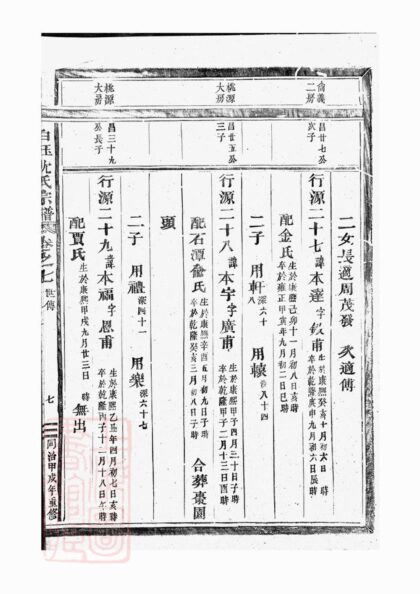 二女長適周茂發 次適傅
尙義二房
昌廿七公次子
行源二十七諱本達字毅甫
生於康熙癸亥十月初六日 時
卒於乾隆庚申九月初六日辰時
配金氏
生於康熙己卯十一月初八日亥時
卒於雍正甲寅年九月初二日巳時
二子 用軒 深六十八 用轅 深八十四
桃源大房
昌廿五公三子
行源二十八諱本宇字廣甫
生於康熙甲子四月三十日子時
卒於乾隆甲子二月十三日酉時
配石潭龠氏
生於康熙辛酉五月初九日子時
卒於乾隆癸亥三月初八日子時
合葬棗園
頭
二子 用禮 深四十一 用樂 深六十七
桃源大房
昌三十九公長子
行源二十九諱本福字恩甫
生於康熙乙丑年四月初七日亥時
卒於乾隆丙子十二月十八日午時
配賈氏
生於康熙甲戌九月廿三日 時
無出
白玉沈氏宗譜 卷之七 世傳 七 同治甲戌年重修